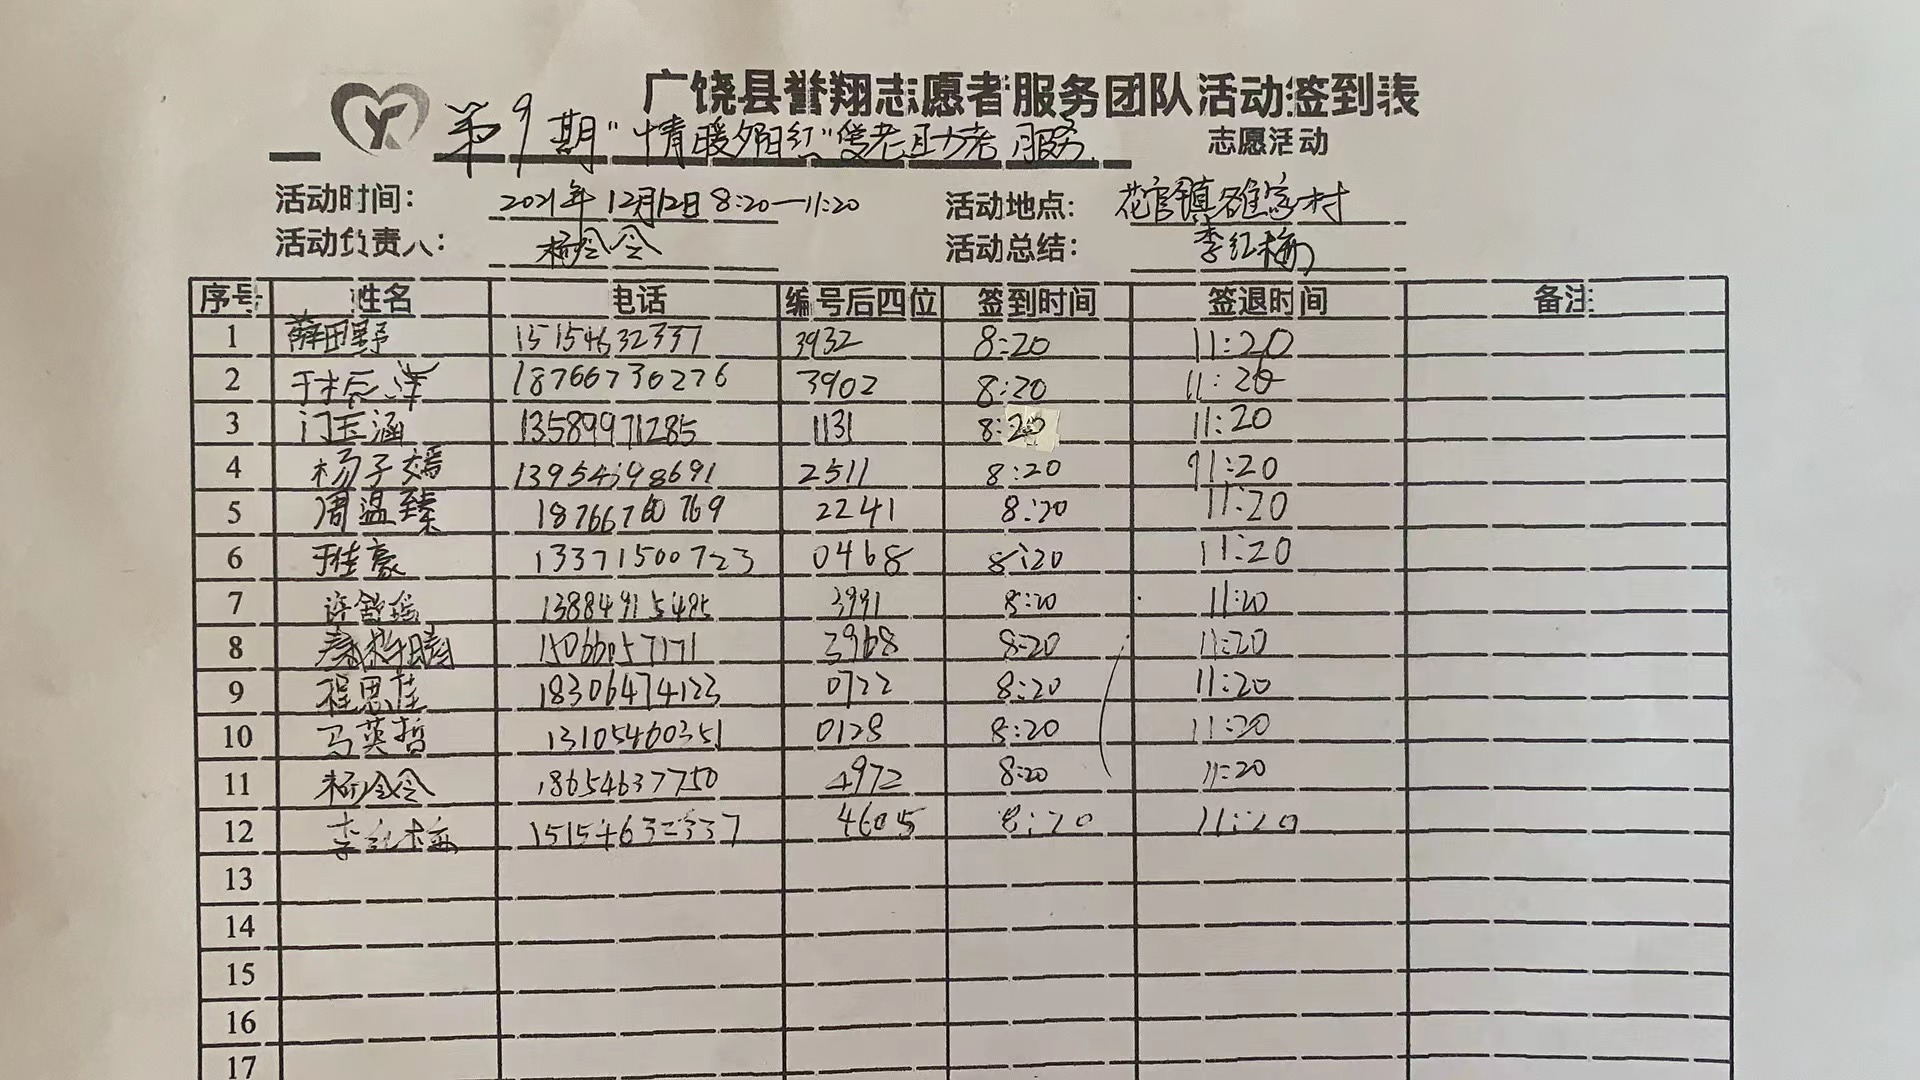 广饶县誉翔志愿者服务团队活动签到表
第9期"情暖夕阳红"爱老助老服务 志愿活动
活动时间: 2021年12月12日 8:20—11:20 活动地点: 花官镇雒家村
活动负责人: 杨令令 活动总结: 李红梅
序号 姓名 电话 编号后四位 签到时间 签退时间 备注
1 薛田野 15154632337 3932 8:20 11:20
2 18766736276 3902 8:20 11:20
3 门玉涵 13589971285 1131 8:20 11:20
4 杨子嫣 13954698691 2511 8:20 11:20
5 周温臻 18766760769 2241 8:20 11:20
6 于佳豪 13371500723 0468 8:20 11:20
7 许舒瑶 13884915485 3991 8:20 11:20
8 15066057171 3968 8:20 11:20
9 程思佳 18306474123 0722 8:20 11:20
10 马英哲 13105460351 0128 8:20 11:20
11 杨令令 18654637750 4972 8:20 11:20
12 李红梅 15154632337 4605 8:20 11:20
13
14
15
16
17